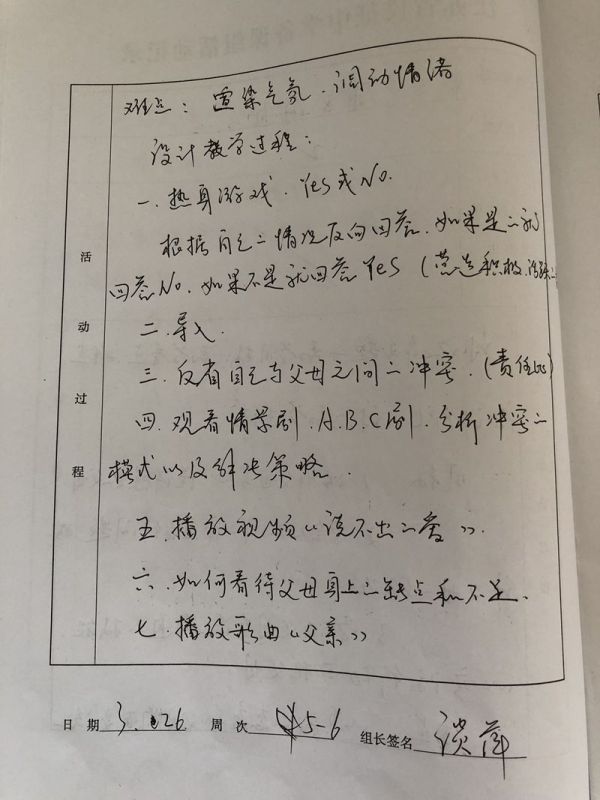 难点：渲染气氛、调动情绪
设计教学过程：
一. 热身游戏. Yes 或 No.
根据自己二情况反向回答. 如果是二就
回答No. 如果不是就回答 Yes (营造积极.活跃二
二. 导入.
三. 反省自己与父母之间二冲突. (责任心)
四. 观看情景剧. A.B.C剧. 分析冲突二
模式以及解决策略.
五. 播放视频《说不出二爱》.
六. 如何看待父母身上二缺点和不足.
七. 播放歌曲《父亲》
活动过程
日期 3. 26 周次 5-6 组长签名